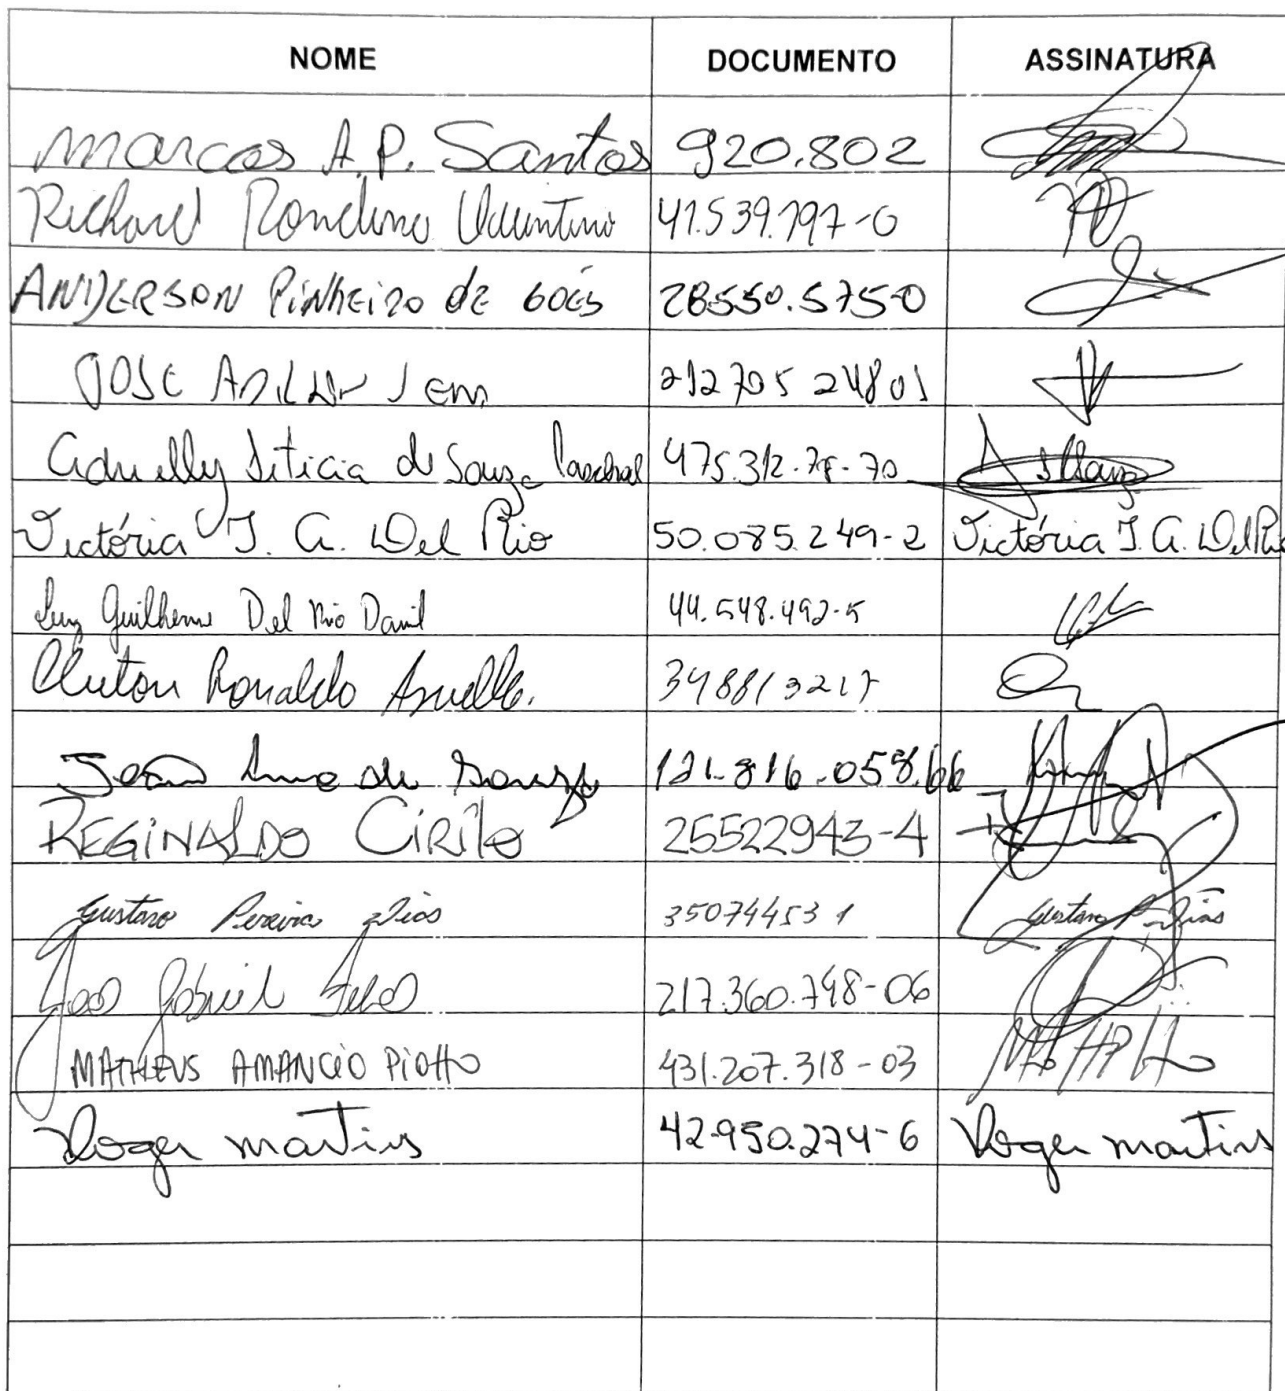 NOME DOCUMENTO ASSINATURA
Marcos A. P. Santos 920.802
Richard Rondino Valentino 41.539.797-0
ANDERSON PiNHEiRO de GOES 28.550.575-0
JOSE 212705 24801
Leticia de Souza Paschoal 475.312.78-70
Victória J. A. Del Rio 50.085.249-2 Victória J. A. Del Rio
Luiz Guilherme Del Rio Danil 44.548.492-5
Cleiton Ronaldo 348813217
de Souza 121.816.058.66
REGiNALDO CiRilo 25522943-4
Gustavo Pereira Dias 35074453 1 Gustavo P. Dias
João Gabriel 217.360.798-06
MATHEUS AMANCIO PiOTTO 431.207.318-03
Roger martins 42.950.274-6 Roger martins